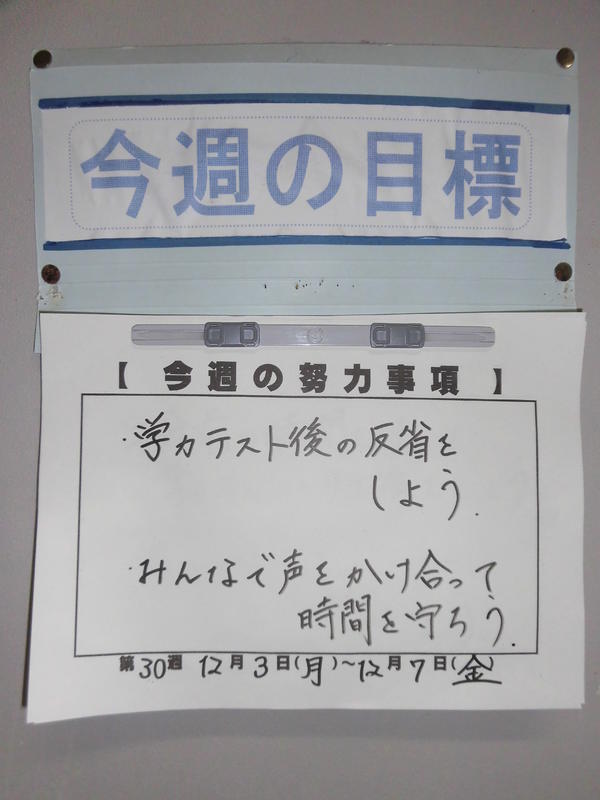 今週の目標
【 今週の努力事項 】
・学力テスト後の反省を
しよう.
・みんなで声をかけ合って
時間を守ろう.
第30週 12月3日(月)~12月7日(金)